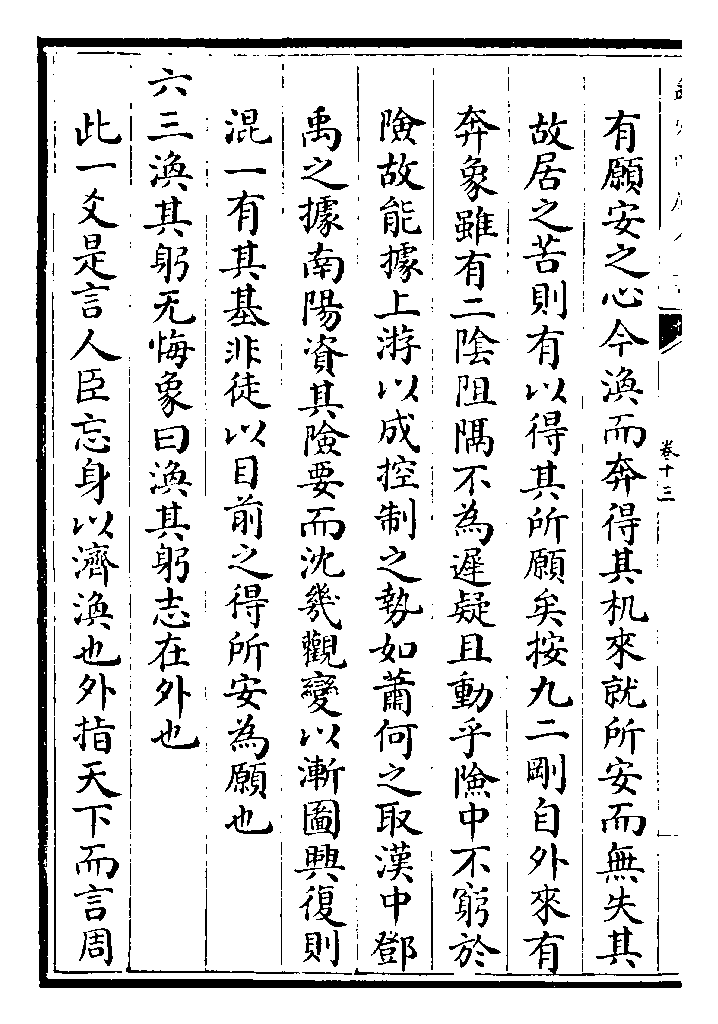 卷十三
有願安之心今渙而奔得其机來就所安而無失其
故居之苦則有以得其所願矣按九二剛自外來有
奔象雖有二陰阻隔不為遲疑且動乎險中不窮於
險故能據上游以成控制之勢如蕭何之取漢中鄧
禹之據南陽資其險要而沈幾觀變以漸圖興復則
混一有其基非徒以目前之得所安為願也
六三渙其躬无悔象曰渙其躬志在外也
此一爻是言人臣忘身以濟渙也外指天下而言周